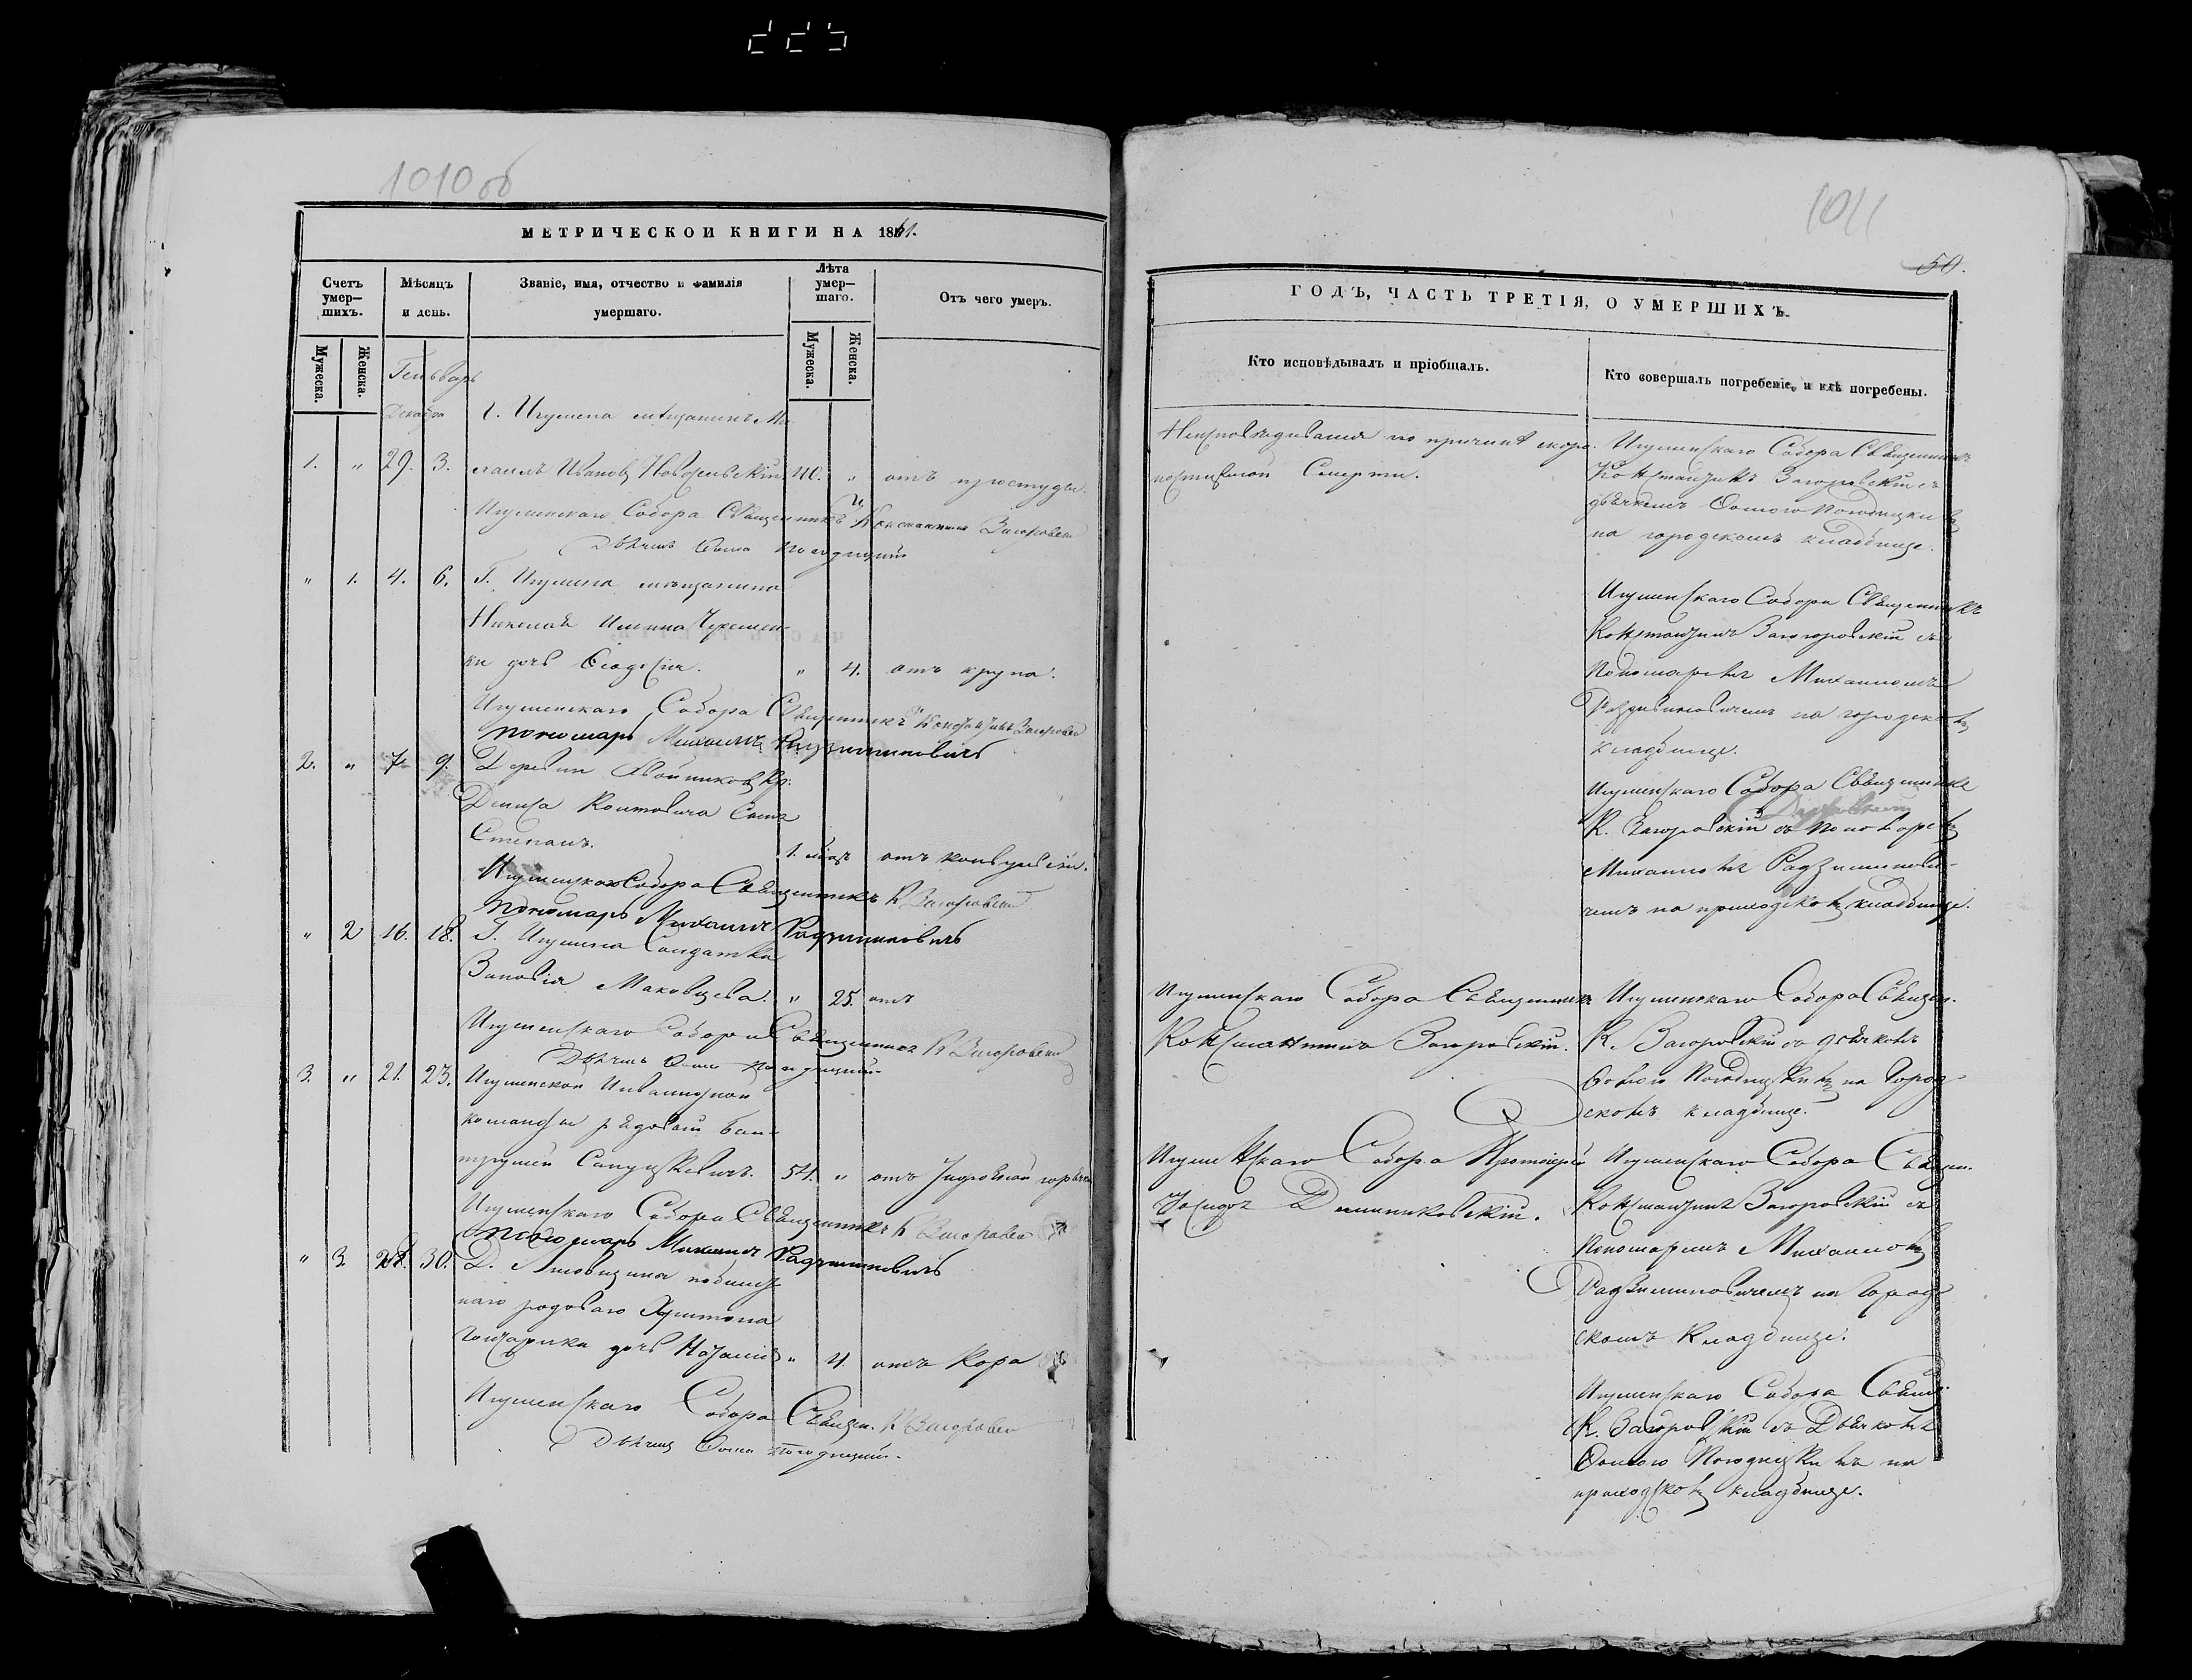 1010 об
МЕТРИЧЕСКОЙ КНИГИ НА 1861.
Счетъ умер-шихъ.
Мѣсяцъ и день.
Званіе, имя, отчество и фамилія умершаго.
Лѣта умер-шаго.
Отъ чего умеръ.
Мужеска.
Женска.
Мужеска.
Женска.
Генварь
Декабря
Г. Игумена мѣщанинъ Ми
1. " 29. 3. хаилъ Ивановъ 40. " отъ простуды.
Игуменскаго Собора Священникъ Константинъ Загоровскій
Дьячекъ Ѳома Погодицкій
" 1. 4. 6. Г. Игумена мѣщанина
Николая Ильина Черемен-
ки дочь Ѳеодосія. " 4. отъ крупа.
Игуменскаго Собора Священникъ Константинъ Загоровскій
Пономарь Михаилъ Радзиминовичъ
2. " 7. 9. Деревни Кр.
Дениса сынъ
Степанъ. 1. мѣся отъ конвульсіи.
Игуменскаго Собора Священникъ К Загоровскій
Пономарь Михаилъ Радзиминовичъ
" 2 16. 18. Г. Игумена Солдатка
Зиновія Маковцева. " 25. отъ
Игуменскаго Собора Священникъ К Загоровскій
Дьячекъ Ѳома Погодицкій
3. " 21. 23. Игуменской Инвалидной
команды рядовой Бал-
трушей 54. " отъ горячки
Игуменскаго Собора Священникъ К Загоровскій
Пономарь Михаилъ Радзиминовичъ
" 3. 28. 30. Д.
наго рядоваго Харитона
Гончарика дочь Наталія " 4. отъ Кора
Игуменскаго Собора Священ. К Загоровскій
Дьячекъ Ѳома Погодицкій.
1011
50.
ГОДЪ, ЧАСТЬ ТРЕТІЯ, О УМЕРШИХЪ.
Кто исповѣдывалъ и пріобщалъ.
Кто совершалъ погребеніе, и гдѣ погребены.
по причинѣ скоро-
постижной Смерти.
Игуменскаго Собора Священникъ
Константинъ Загоровскій съ
дьячкомъ Ѳомою Погодицкимъ
на городскомъ кладбище.
Игуменскаго Собора Священникъ
Константинъ Загоровскій съ
Пономаремъ Михаиломъ
Радзиминовичемъ на городскомъ
кладбище.
Игуменскаго Собора Священникъ
К. Загоровскій съ Пономаремъ
Михаиломъ Радзиминови-
чемъ на приходскомъ кладбище.
Игуменскаго Собора Священникъ
Константинъ Загоровскій.
Игуменскаго Собора Священ.
К. Загоровскій съ дьячкомъ
Ѳомою Погодицкимъ на Город-
скомъ кладбище.
Игуменскаго Собора Протоіерей
Іосифъ
Игуменскаго Собора Священ.
Константинъ Загоровскій съ
Пономаремъ Михаиломъ
Радзиминовичемъ на Город-
скомъ Кладбище.
Игуменскаго Собора Священ.
К. Загоровскій съ Дьячкомъ
Ѳомою Погодицкимъ на
приходскомъ кладбище.